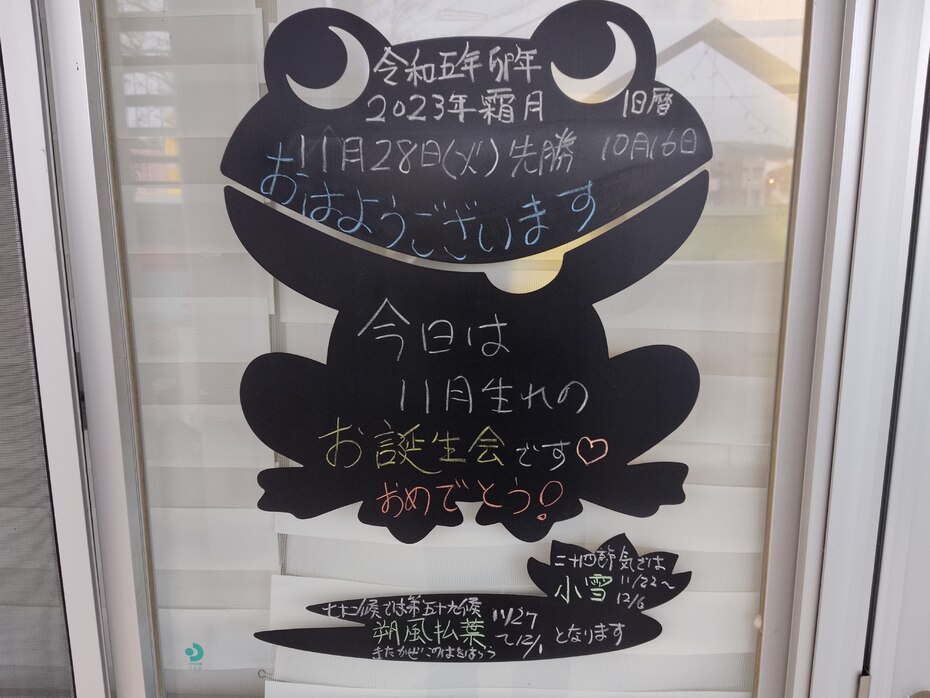 令和五年 卯年
2023年 霜月 旧暦
11月28日(火) 先勝 10月16日
おはようございます
今日は
11月生れの
お誕生会です♡
おめでとう!
二十四節気では
小雪 11/22〜
12/6
七十二候では第五十九候
朔風払葉 11/27
〜12/1 となります
きたかぜこのはをはらう